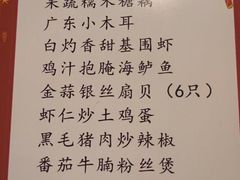 果蔬糯米糖藕
广东小木耳
白灼香甜基围虾
鸡汁抱腌海鲈鱼
金蒜银丝扇贝（6只）
虾仁炒土鸡蛋
黑毛猪肉炒辣椒
番茄牛腩粉丝煲